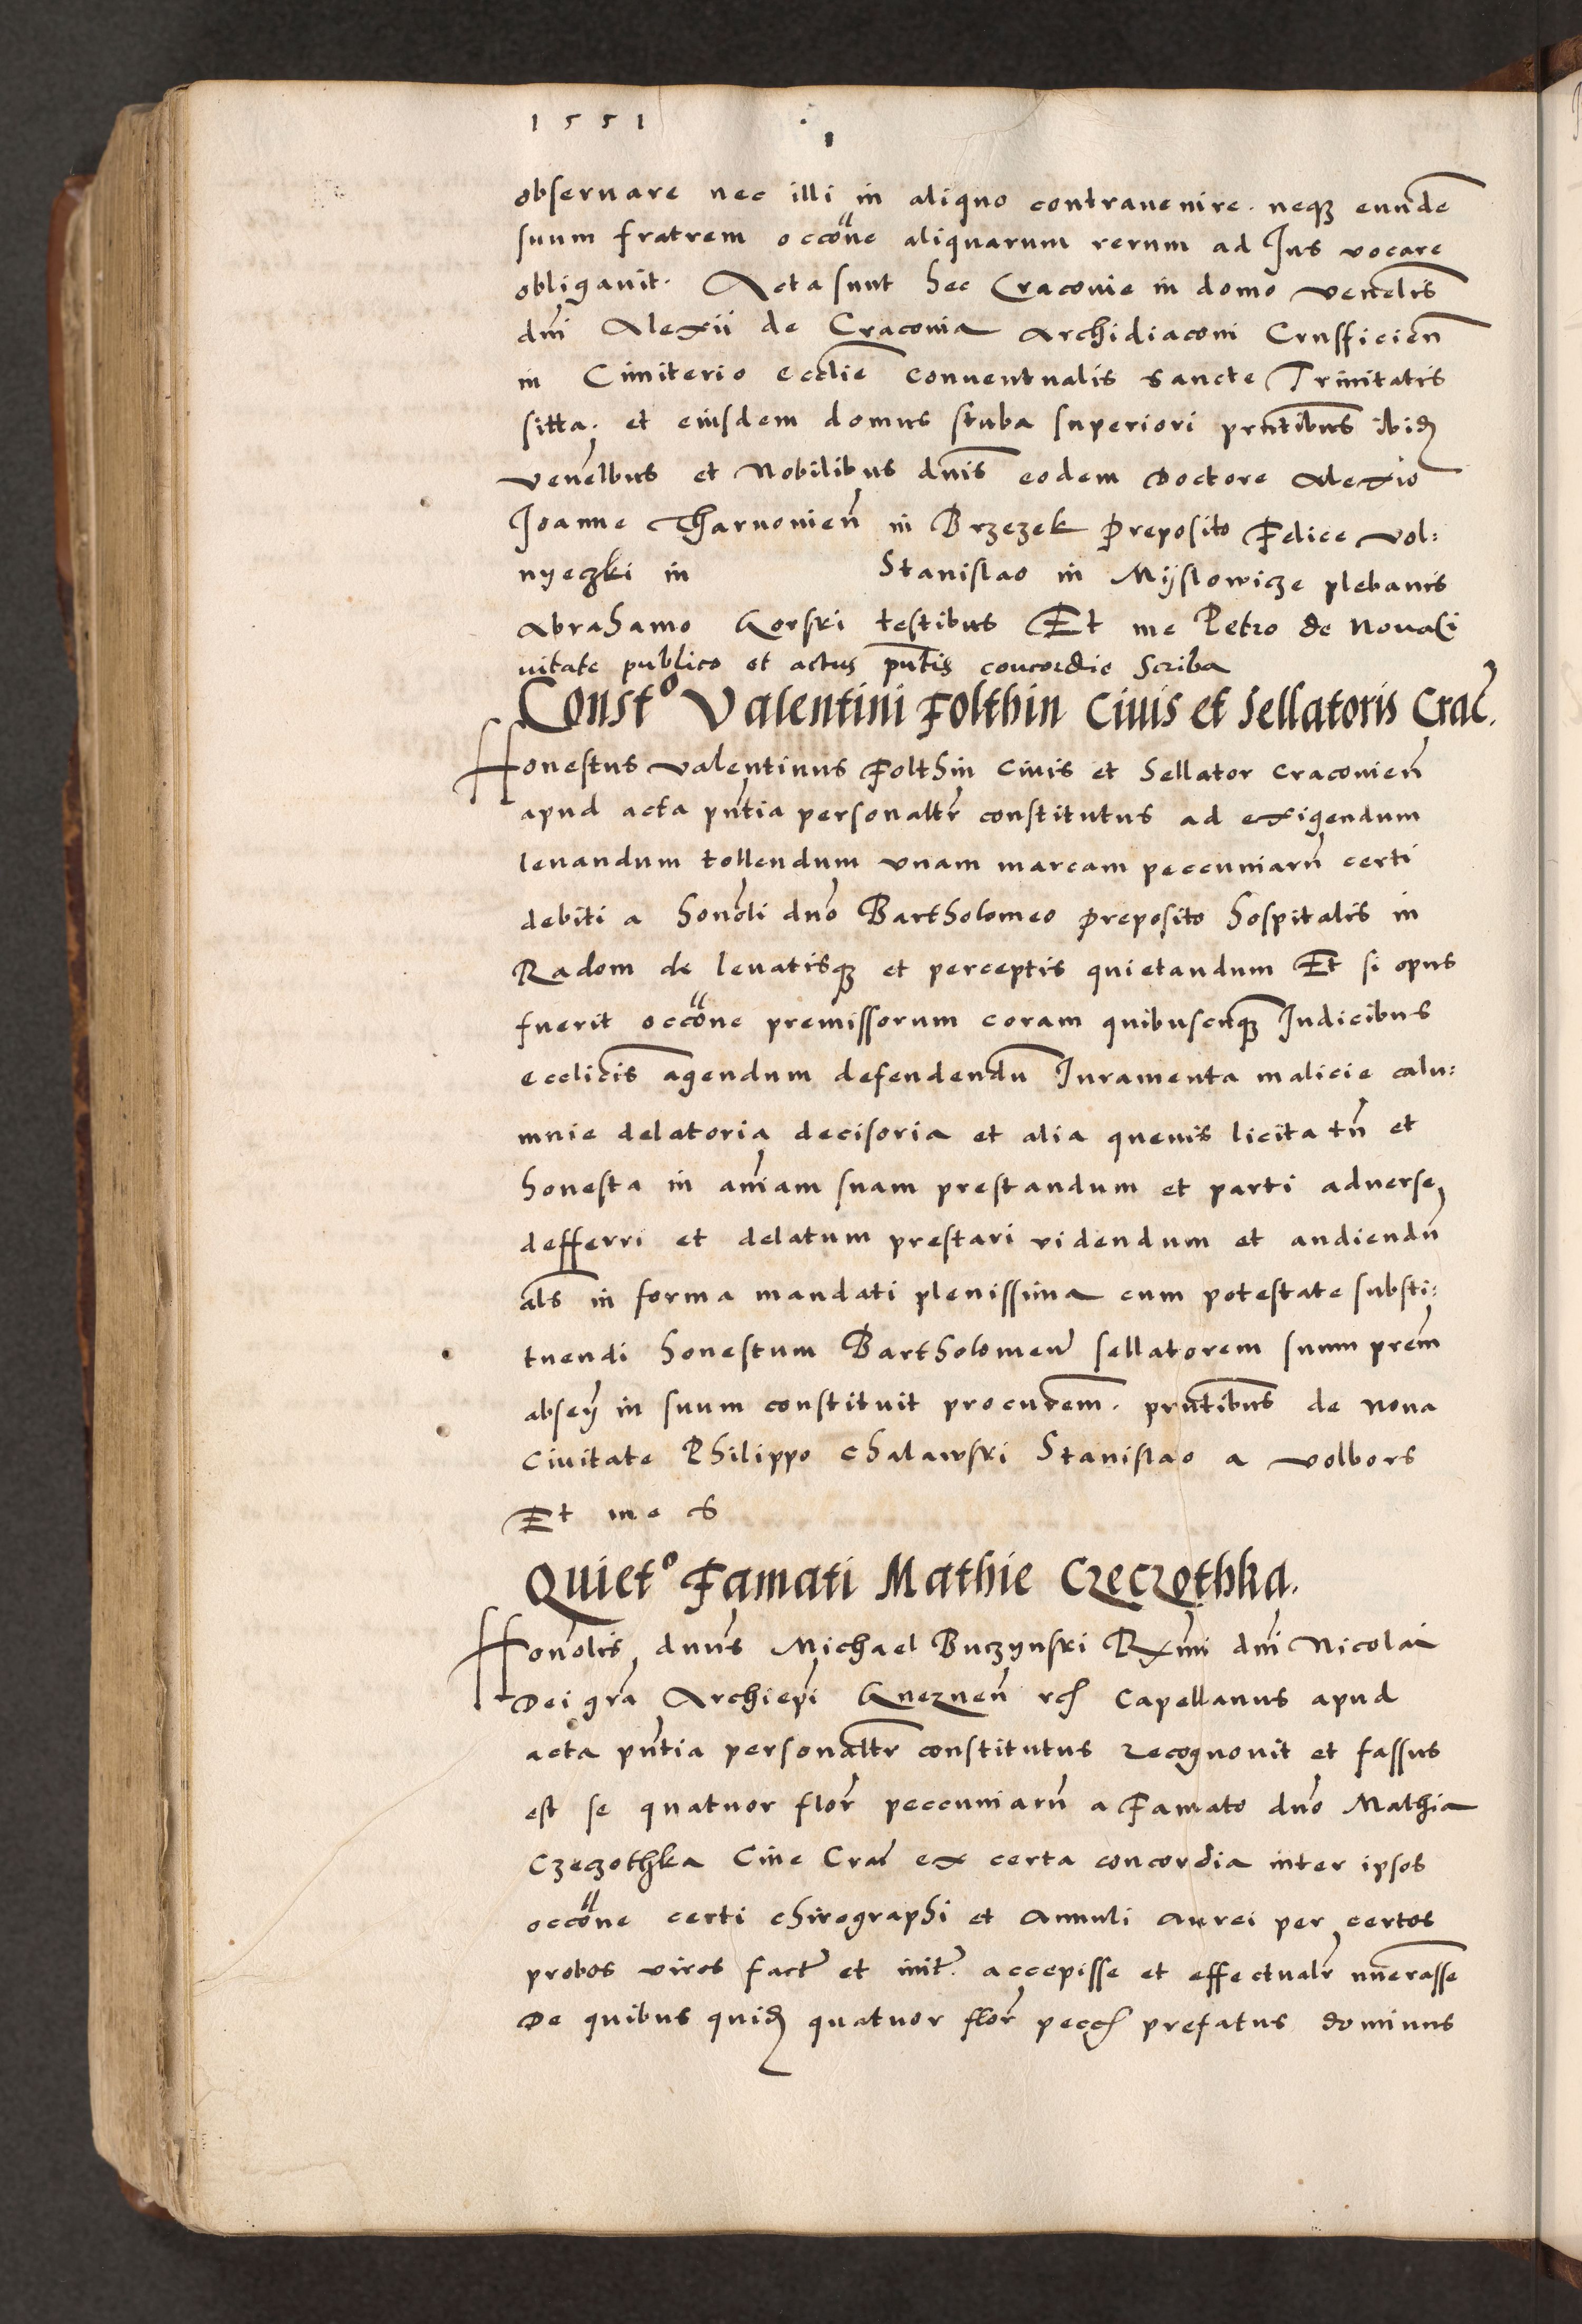 1551
obseruare nec illi in aliquo contrauenire. neq3 eunde
suum fratrem occone aliquarum rerum ad Jus vocare
obligauit. Acta sunt hec Cracouie in domo venelis
dni Alexii de Cracouia Archidiaconi Crusficien
in Cimiterio ecclie conuentualis sancte Trinitatis
sitta. et eiusdem domus stuba superiori prntibus ibid
venelbus et Nobilibus dnis eodem Doctore Alexio
Joanne Tharnouien in Brzezek Preposito Felice Vol:
nyeczki in Stanislao in Myslowicze plebanis
Abrahamo Gorski testibus Et me Petro de Noua Ci
uitate publico et actus pntis concordie Scriba
Const° Valentini Folthin Ciuis et Sellatoris Crac.
Honestus Valentinus Folthin Ciuis et Sellator Cracouien
apud acta pntia personaltr constitutus ad exigendum
leuandum tollendum vnam marcam peccuniarn certi
debiti a honoli dno Bartholomeo Preposito hospitalis in
Radom de leuatisq3 et perceptis quietandum Et si opus
fuerit occone premissorum coram quibuscnq3 Judicibus
ecclicis agendum defendendu Juramenta malicie calu:
mnie delatoria decisoria et alia queuis licita tn et
honesta in aniam suam prestandum et parti aduerse
defferri et delatum prestari videndum et audiendu
als in forma mandati plenissima cum potestate substi:
tuendi honestum Bartholomeu sellatorem suum prem
absen in suum constituit procurem. prntibus de Noua
Ciuitate Philippo Chalawski Stanislao a Volbors
Et me S
Quiet° Famati Mathie Czeczothka.
Honolis dnus Michael Buczynski Rxmi dni Nicolai
Dei gra Archiepi Gneznen rc Capellanus apud
acta pntia personaltr constitutus recognouit et fassus
est se quatuor flor peccuniarn a Famato dno Mathia
Czeczothka Ciue Crac ex certa concordia inter ipsos
occone certi chirographi et Annuli Aurei per certos
probos viros fact et init. accepisse et effectualr nnerasse
De quibus quid quatuor flor pecc prefatus dominus